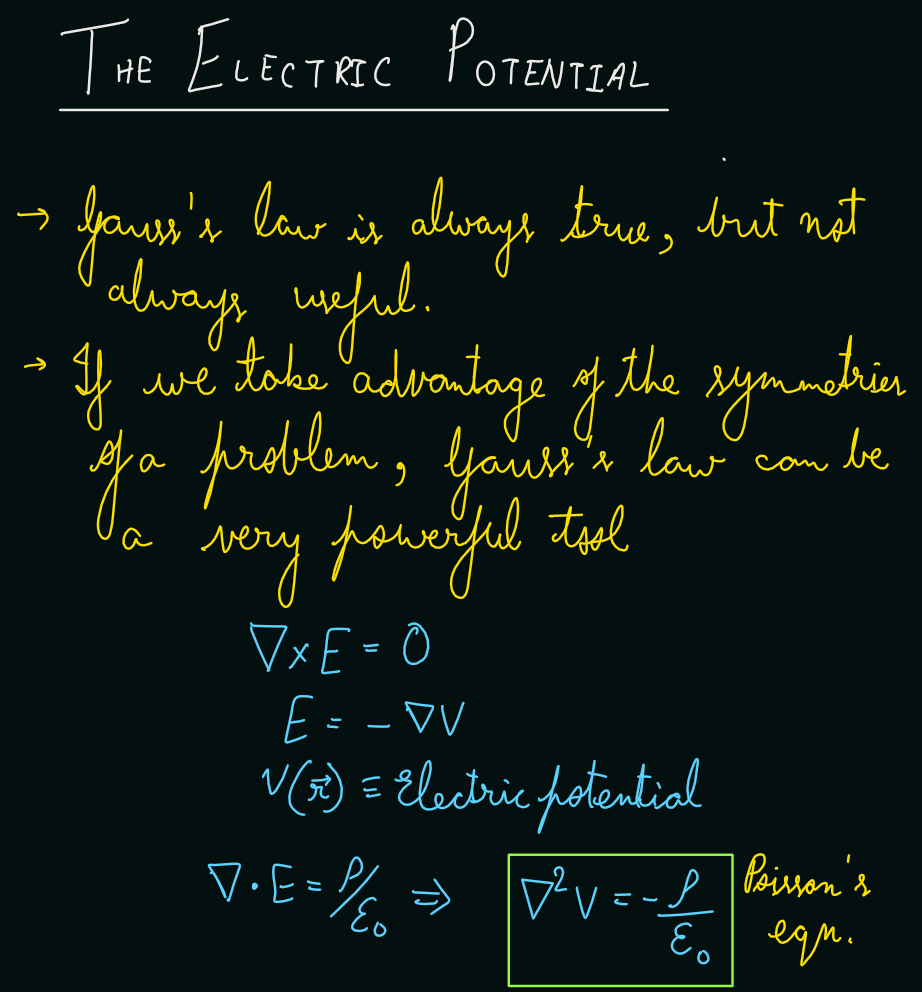 THE ELECTRIC POTENTIAL
→ Gauss's law is always true, but not
always useful.
→ If we take advantage of the symmetries
of a problem, Gauss's law can be
a very powerful tool
∇×E = 0
E = -∇V
V(r⃗) ≡ Electric potential
∇·E = ρ/ε₀ ⇒ ∇²V = -ρ/ε₀ Poisson's
eqn.